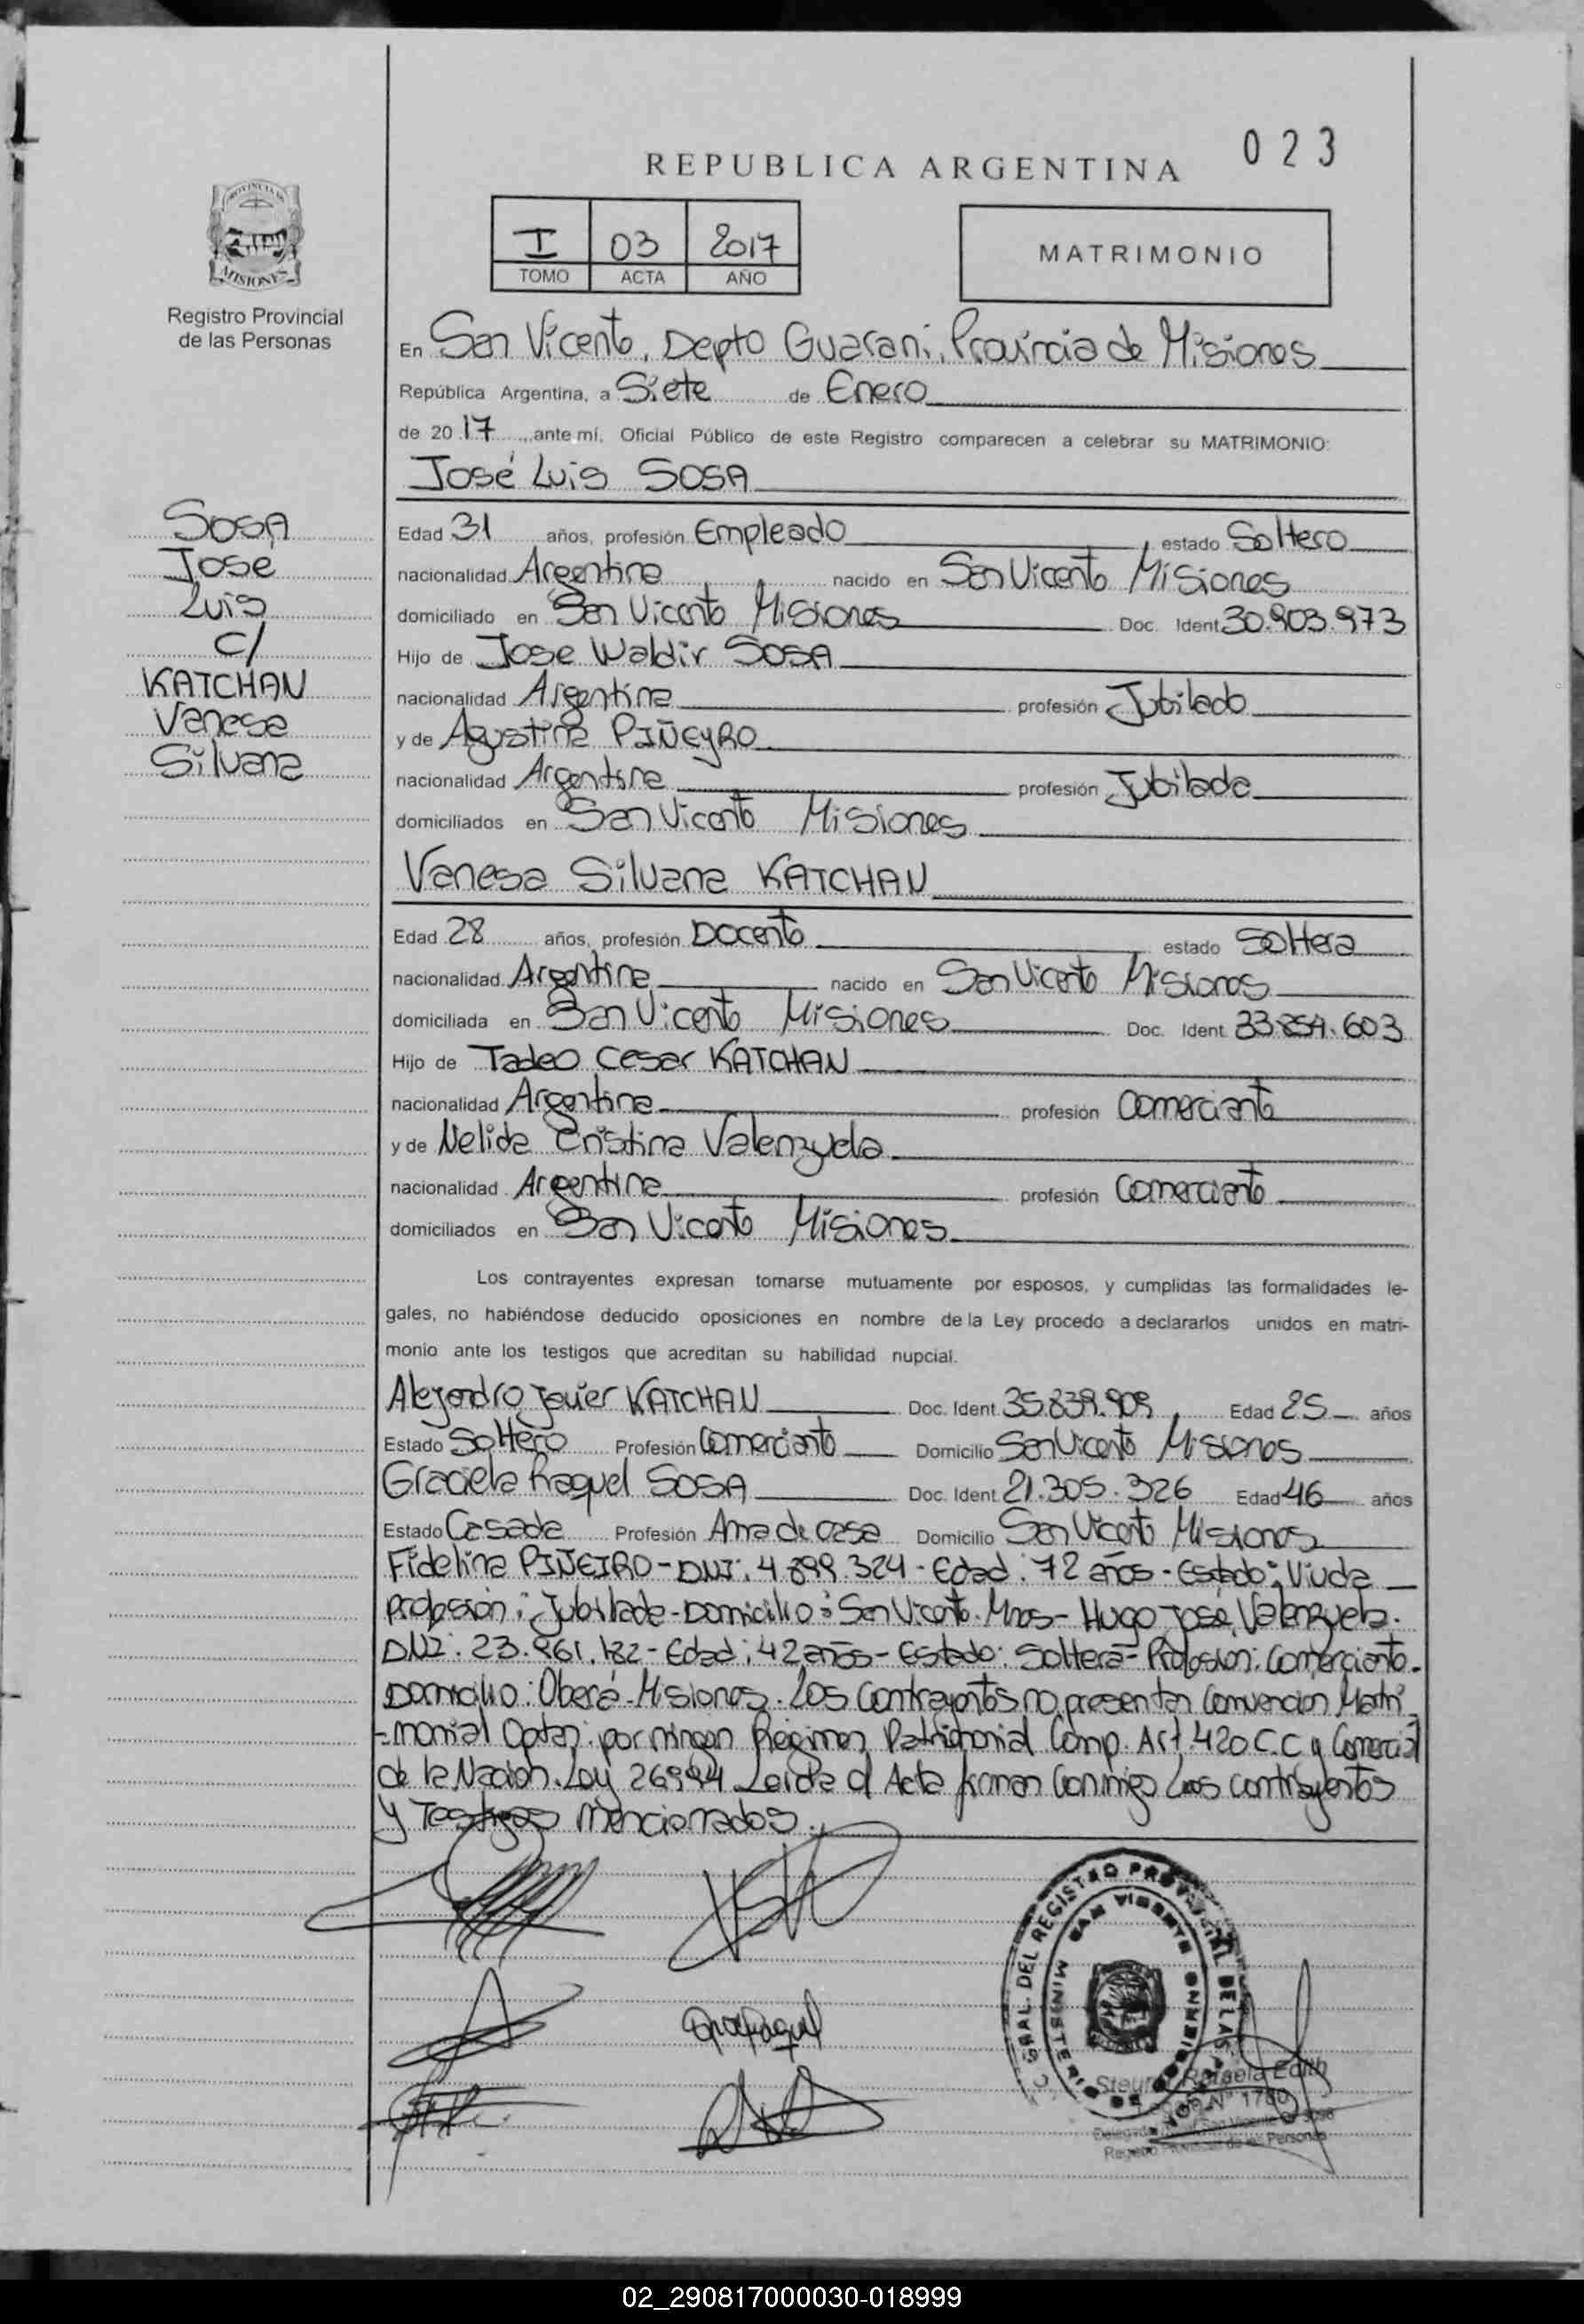 023
REPUBLICA ARGENTINA
I 03 2017
TOMO ACTA AÑO
MATRIMONIO
PROVINCIA DE
MISIONES
Registro Provincial
de las Personas
En San Vicente, Depto Guarani, Provincia de Misiones
República Argentina, a Siete de Enero
de 2017, ante mí, Oficial Público de este Registro comparecen a celebrar su MATRIMONIO:
José Luis SOSA
SOSA
José
Luis
C/
KATCHAN
Vanesa
Silvana
Edad 31 años, profesión Empleado estado Soltero
nacionalidad Argentina nacido en San Vicente Misiones
domiciliado en San Vicente Misiones Doc. Ident. 30.903.973
Hijo de Jose Waldir SOSA
nacionalidad Argentina profesión Jubilado
y de Agustina PIÑEYRO
nacionalidad Argentina profesión Jubilada
domiciliados en San Vicente Misiones
Vanesa Silvana KATCHAN
Edad 28 años, profesión Docente estado Soltera
nacionalidad Argentina nacido en San Vicente Misiones
domiciliada en San Vicente Misiones Doc. Ident. 33.854.603
Hijo de Tadeo Cesar KATCHAN
nacionalidad Argentina profesión Comerciante
y de Nelida Cristina Valenzuela
nacionalidad Argentina profesión Comerciante
domiciliados en San Vicente Misiones
Los contrayentes expresan tomarse mutuamente por esposos, y cumplidas las formalidades le-
gales, no habiéndose deducido oposiciones en nombre de la Ley procedo a declararlos unidos en matri-
monio ante los testigos que acreditan su habilidad nupcial.
Alejandro Javier KATCHAN Doc. Ident. 35.839.909 Edad 25 años
Estado Soltero Profesión Comerciante Domicilio San Vicente Misiones
Graciela Raquel SOSA Doc. Ident. 21.305.326 Edad 46 años
Estado Casada Profesión Ama de casa Domicilio San Vicente Misiones
Fidelina PIÑEIRO - DNI: 4.899.324 - Edad: 72 años - Estado: Viuda
profesion: Jubilada - Domicilio: San Vicente. Mnes - Hugo José Valenzuela.
DNI: 23.961.182 - Edad: 42 años - Estado: Soltera - Profesion: Comerciante.
Domicilio: Oberá - Misiones. Los Contrayentes no presentan Convencion Matri
-monial Optan por ningun Regimen Patrimonial Comp. Art. 420 C.C y Comercial
de la Nacion. Ley 26994 Leida el Acta firman Conmigo Los contrayentes
y Testigos Mencionados.
GRAL. DEL REGISTRO PROVINCIAL DE LAS
SAN VICENTE
MINISTERIO DE GOBIERNO
Rafaela Edith
N° 1780
Registro Provincial de las Personas
02_290817000030-018999